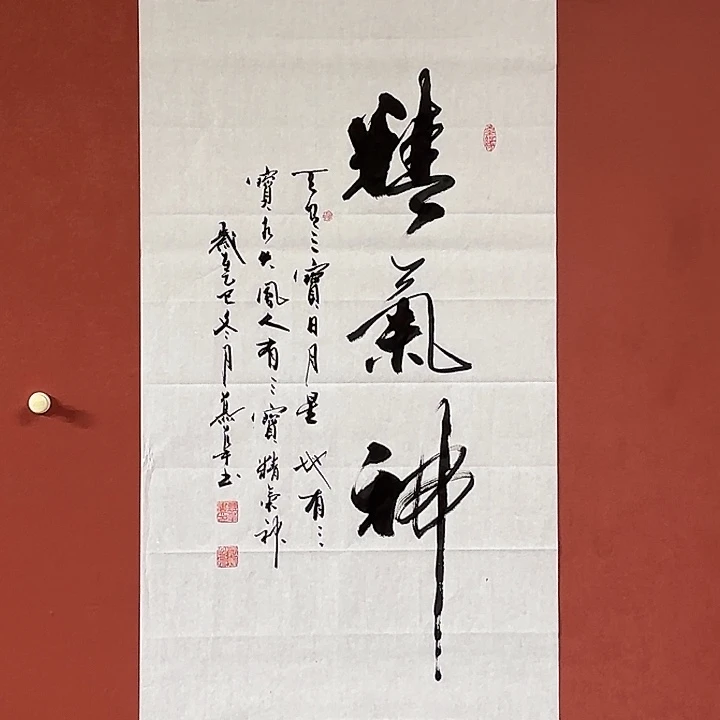 精氣神
天有三寶日月星地有三
寶水火風人有三寶精氣神
歲在乙巳冬月 書